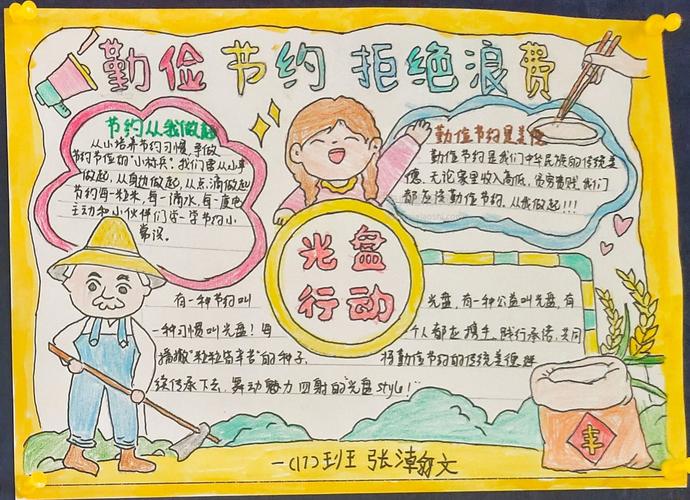 勤俭节约 拒绝浪费
节约从我做起
从小培养节约习惯，争做
节约节俭的"小标兵"。我们要从小事
做起，从身边做起，从点滴做起
节约每一粒米，每一滴水，每一度电
主动和小伙伴们学一学节约小
常识。
勤俭节约是美德
勤俭节约是我们中华民族的传统美
德，无论家里收入高低，贫穷贵贱，我们
都应该勤俭节约，从我做起!!!
光盘
行动
有一种节约叫 光盘，有一种公益叫光盘，有
一种习惯叫光盘！每 个人都应携手，践行承传，共同
播撒"粒粒皆辛苦"的种子， 将勤俭节约的传统美德继
续传承下去，舞动魅力四射的"光盘style!"
丰
一(17)班 张漳翰文